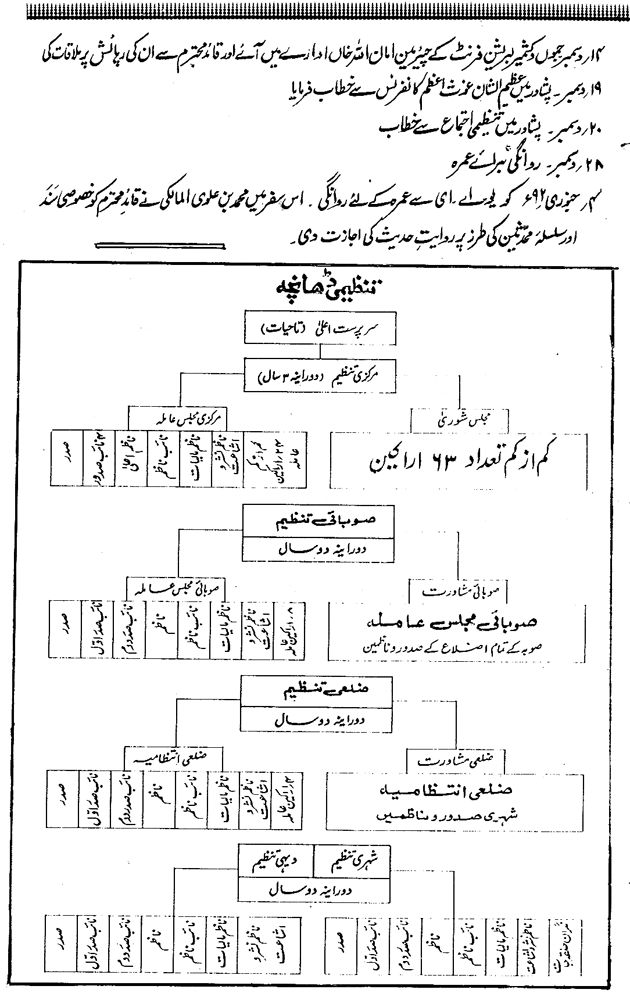 ۱۴ دسمبر جموں و کشمیر لبریشن فرنٹ کے چیئرمین امان اللہ خاں ادارے میں آئے اور قائد محترم سے ان کی رہائش پر ملاقات کی
۱۹ دسمبر۔ پشاور میں عظیم الشان غوث اعظم کانفرنس سے خطاب فرمایا
۲۰ دسمبر۔ پشاور میں تنظیمی اجتماع سے خطاب
۲۸ دسمبر۔ روانگی برائے عمرہ
۴ جنوری ۹۲ء کو یو۔ اے۔ ای سے عمرہ کے لئے روانگی ۔ اس سفر میں محمد بن علوی المالکی نے قائد محترم کو خصوصی سند
اور سلسلۂ محدثین کی طرز پر روایت حدیث کی اجازت دی۔
تنظیمی ڈھانچہ
سرپرست اعلیٰ (تاحیات)
مرکزی تنظیم (دورانیہ ۳ سال)
مجلس شوریٰ
کم از کم تعداد ۶۳ اراکین
مرکزی مجلس عاملہ
عاملہ ۲۴ اراکین کم از کم
ناظم نشرو اشاعت
ناظم مالیات
نائب ناظم
ناظم اعلیٰ
۴ نائب صدور
صدر
صوبائی تنظیم
دورانیہ دو سال
صوبائی مشاورت
صوبائی مجلس عاملہ
صوبہ کے تمام اضلاع کے صدور و ناظمین
صوبائی مجلس عاملہ
۸ اراکین عاملہ
ناظم نشرو اشاعت
ناظم مالیات
نائب ناظم
ناظم
نائب صدر دوم
نائب صدر اول
صدر
ضلعی تنظیم
دورانیہ دو سال
ضلعی مشاورت
ضلعی انتظامیہ
شہری صدور و ناظمین
ضلعی انتظامیہ
۴ اراکین عاملہ
ناظم نشرو اشاعت
ناظم مالیات
نائب ناظم
ناظم
نائب صدر دوم
نائب صدر اول
صدر
شہری تنظیم
دیہی تنظیم
دورانیہ دو سال
ناظم نشرو اشاعت
ناظم مالیات
نائب ناظم
ناظم
نائب صدر دوم
نائب صدر اول
صدر
ناظم نشرو اشاعت
ناظم مالیات
نائب ناظم
ناظم
نائب صدر دوم
نائب صدر اول
صدر